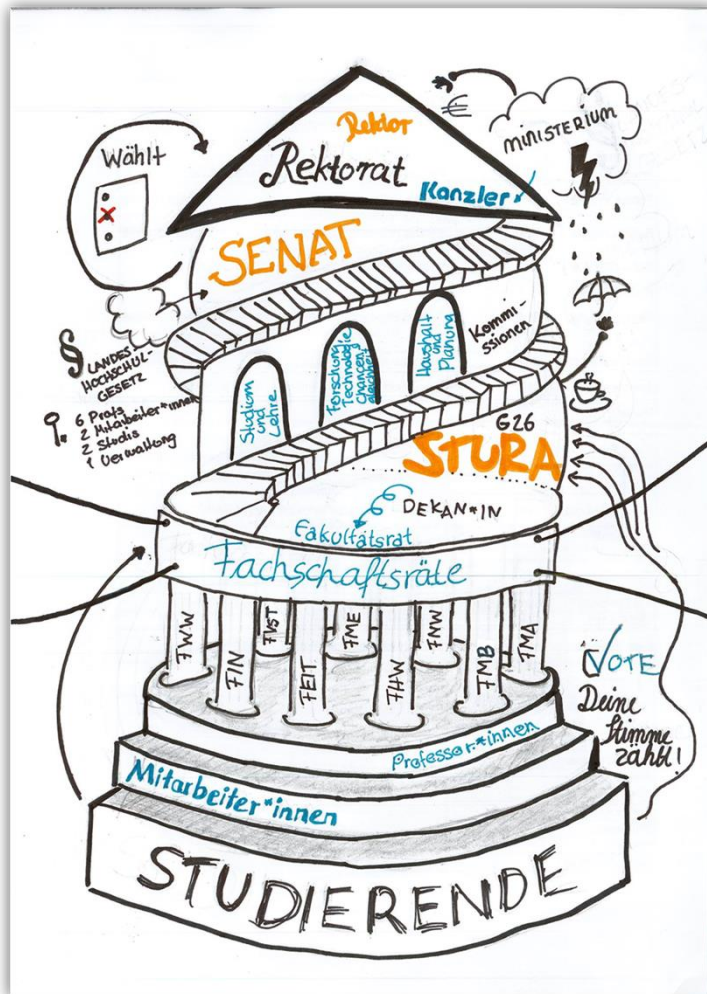 Rektor
Rektorat
Kanzler
Wählt
MINISTERIUM
€
SENAT
§ LANDES
HOCHSCHUL-
GESETZ
6 Profs
2 Mitarbeiter*innen
2 Studis
1 Verwaltung
Studium
und
Lehre
Forschung
Technologie
chancen
gleichheit
Haushalt
und
Planung
Kommi-
ssionen
G26
STURA
DEKAN*IN
Fakultätsrat
Fachschaftsräte
FWW
FIN
FVST
FEIT
FME
FHW
FNW
FMB
FMA
VOTE
Deine
Stimme
zählt!
Professor*innen
Mitarbeiter*innen
STUDIERENDE